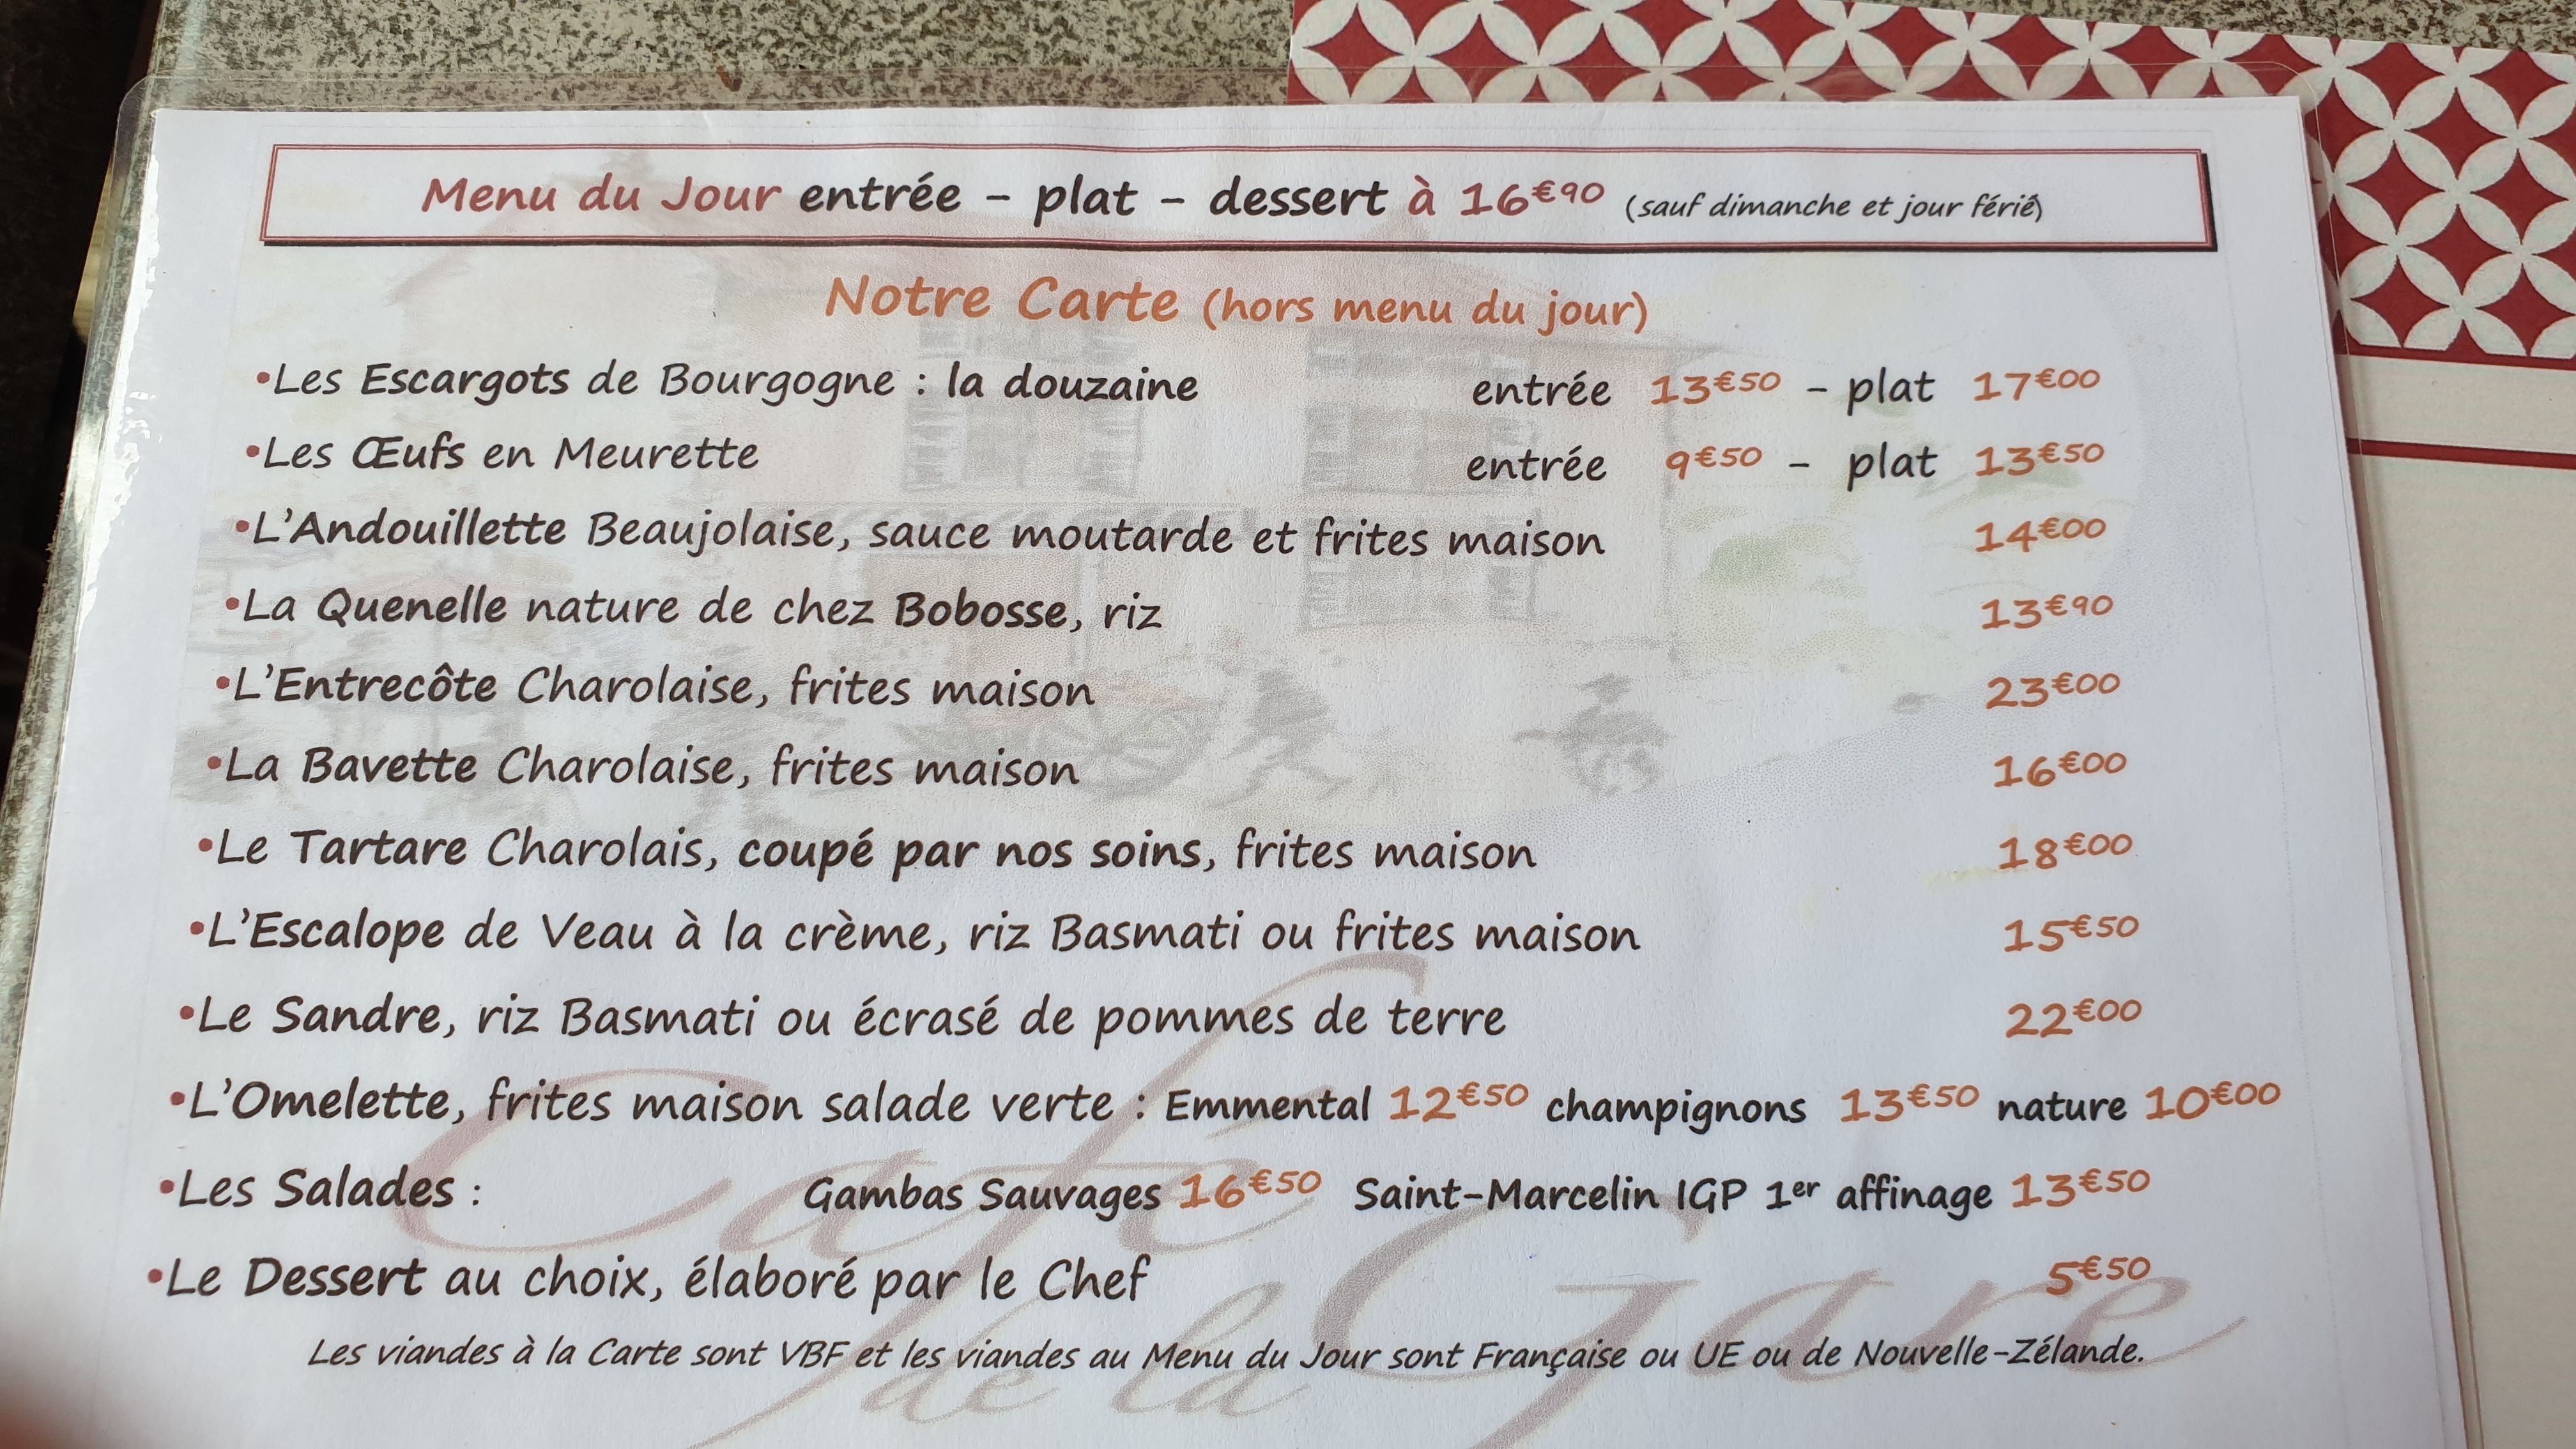 Menu du Jour entrée - plat - dessert à 16€90 (sauf dimanche et jour férié)
Notre Carte (hors menu du jour)
•Les Escargots de Bourgogne : la douzaine entrée 13€50 - plat 17€00
•Les Œufs en Meurette entrée 9€50 - plat 13€50
•L'Andouillette Beaujolaise, sauce moutarde et frites maison 14€00
•La Quenelle nature de chez Bobosse, riz 13€90
•L'Entrecôte Charolaise, frites maison 23€00
•La Bavette Charolaise, frites maison 16€00
•Le Tartare Charolais, coupé par nos soins, frites maison 18€00
•L'Escalope de Veau à la crème, riz Basmati ou frites maison 15€50
•Le Sandre, riz Basmati ou écrasé de pommes de terre 22€00
•L'Omelette, frites maison salade verte : Emmental 12€50 champignons 13€50 nature 10€00
•Les Salades : Gambas Sauvages 16€50 Saint-Marcelin IGP 1er affinage 13€50
•Le Dessert au choix, élaboré par le Chef 5€50
Les viandes à la Carte sont VBF et les viandes au Menu du Jour sont Française ou UE ou de Nouvelle-Zélande.
Café
de la Gare